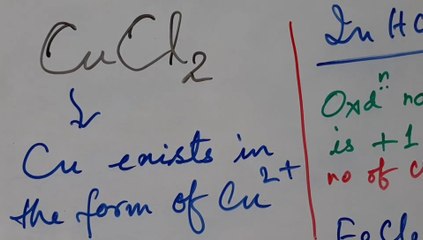 CuCl2
↓
Cu exists in
the form of Cu2+
In HC
Oxdn no
is +1
no of
FeCl